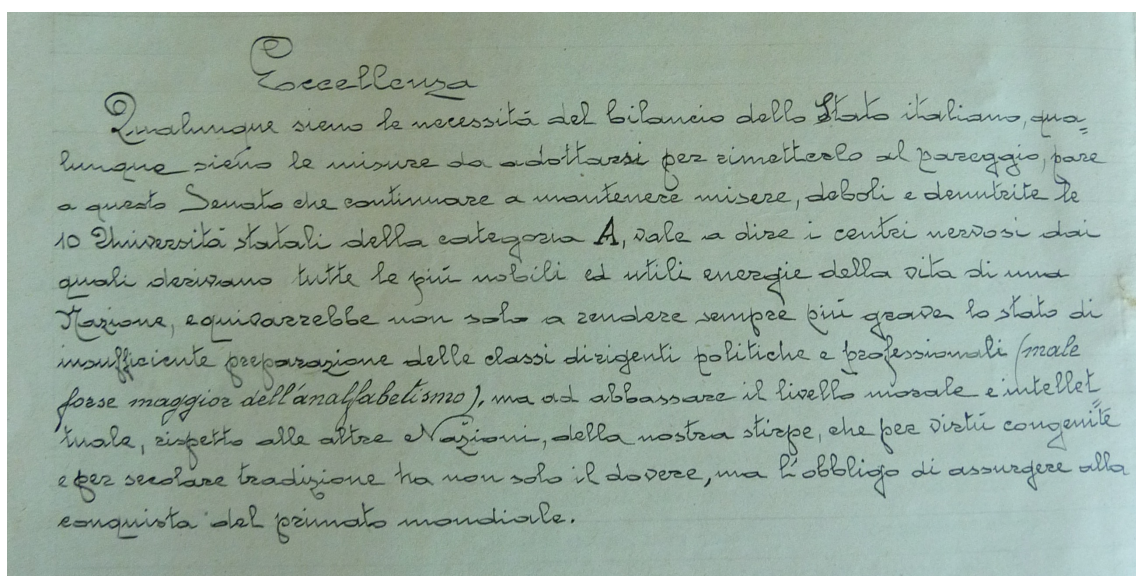 Eccellenza
Qualunque sieno le necessitá del bilancio dello Stato italiano, qua=
lunque sieno le misure da adottarsi per rimetterlo al pareggio, pare
a questo Senato che continuare a mantenere misere, deboli e denutrite le
10 Università statali della categoria A, vale a dire i centri nervosi dai
quali derivano tutte le piú nobili ed utili energie della vita di una
Nazione, equivarrebbe non solo a rendere sempre piú grave lo stato di
insufficiente preparazione delle classi dirigenti politiche e professionali (male
forse maggior dell'analfabetismo), ma ad abbassare il livello morale e intellet=
tuale, rispetto alle altre Nazioni, della nostra stirpe, che per virtú congenite
e per secolare tradizione ha non solo il dovere, ma l'obbligo di assurgere alla
conquista del primato mondiale.